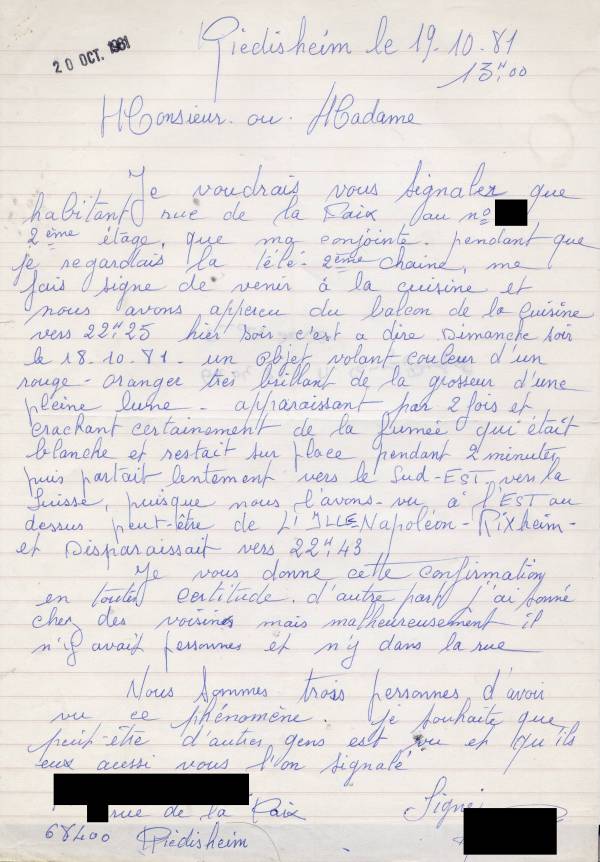 Riedisheim le 19.10.81
20 OCT. 1981
13H,00
Monsieur. ou. Madame
Je voudrais vous signaler que
habitant rue de la Paix au no
2ème étage, que ma conjointe. pendant que
je regardais la télé. 2ème chaine, me
fais signe de venir à la cuisine et
nous avons apperçu du balcon de la cuisine
vers 22H,25 hier soir c'est a dire Dimanche soir
le 18.10.81. un objet volant couleur d'un
rouge-oranger très brillant de la grosseur d'une
pleine lune - apparaissant par 2 fois et
crachant certainement de la fumée qui était
blanche et restait sur place pendant 2 minutes
puis partait lentement vers le Sud-EST vers la
Suisse, puisque nous l'avons-vu à l'EST au
dessus peut-être de L'ILLE Napoléon-Rixheim-
et Disparaissait vers 22H,43
Je vous donne cette confirmation
en toute certitude. d'autre part j'ai sonné
chez des voisins mais malheureusement il
n'y avait personnes et n'y dans la rue
Nous sommes trois personnes d'avoir
vu ce phénomène. je souhaite que
peut-être d'autres gens est vu et qu'ils
eux aussi vous l'on signalé
rue de la Paix Signé;
68400 Riedisheim